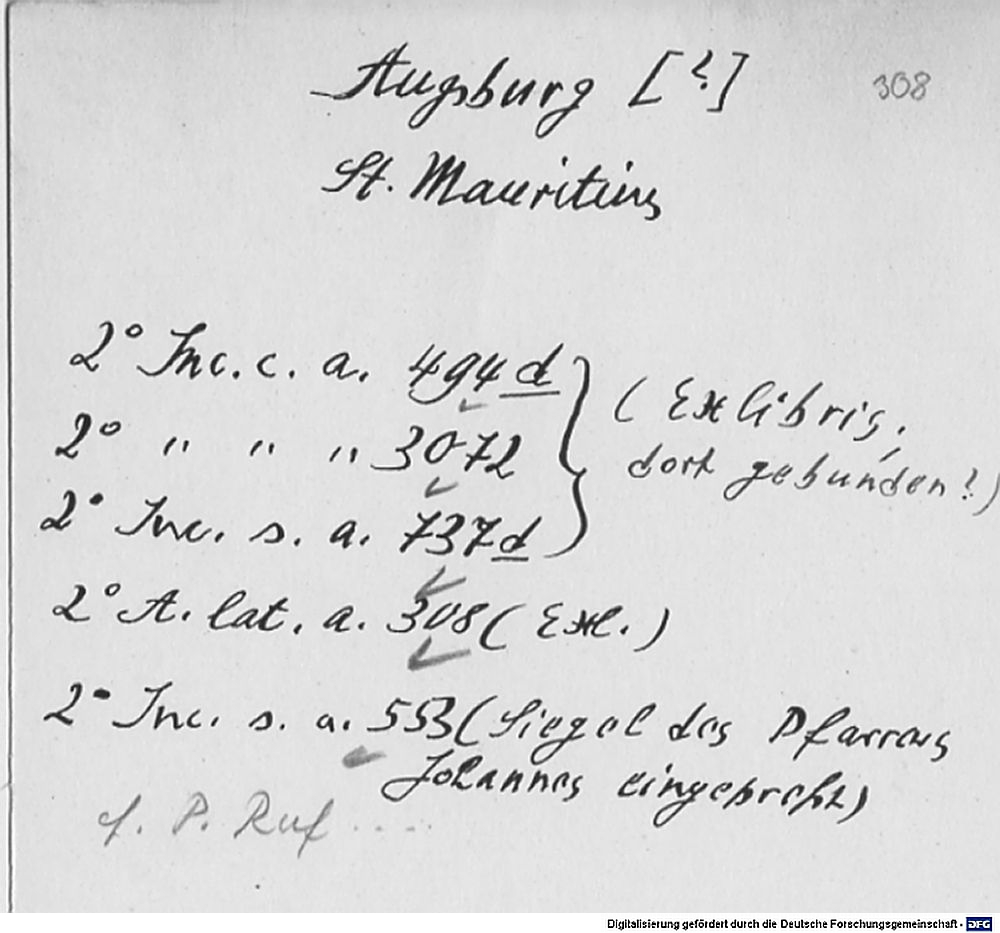 Augsburg [?] 308
St. Mauritius
2° Inc. c. a. 494 d
2° " " " 3072
(Exlibris,
dort gebunden?)
2° Inc. s. a. 737 d
2° A. lat. a. 308 (Exl.)
2° Inc. s. a. 553 (Siegel des Pfarrers
Johannes eingepreßt)
cf. P. Ruf ....
Digitalisierung gefördert durch die Deutsche Forschungsgemeinschaft - DFG